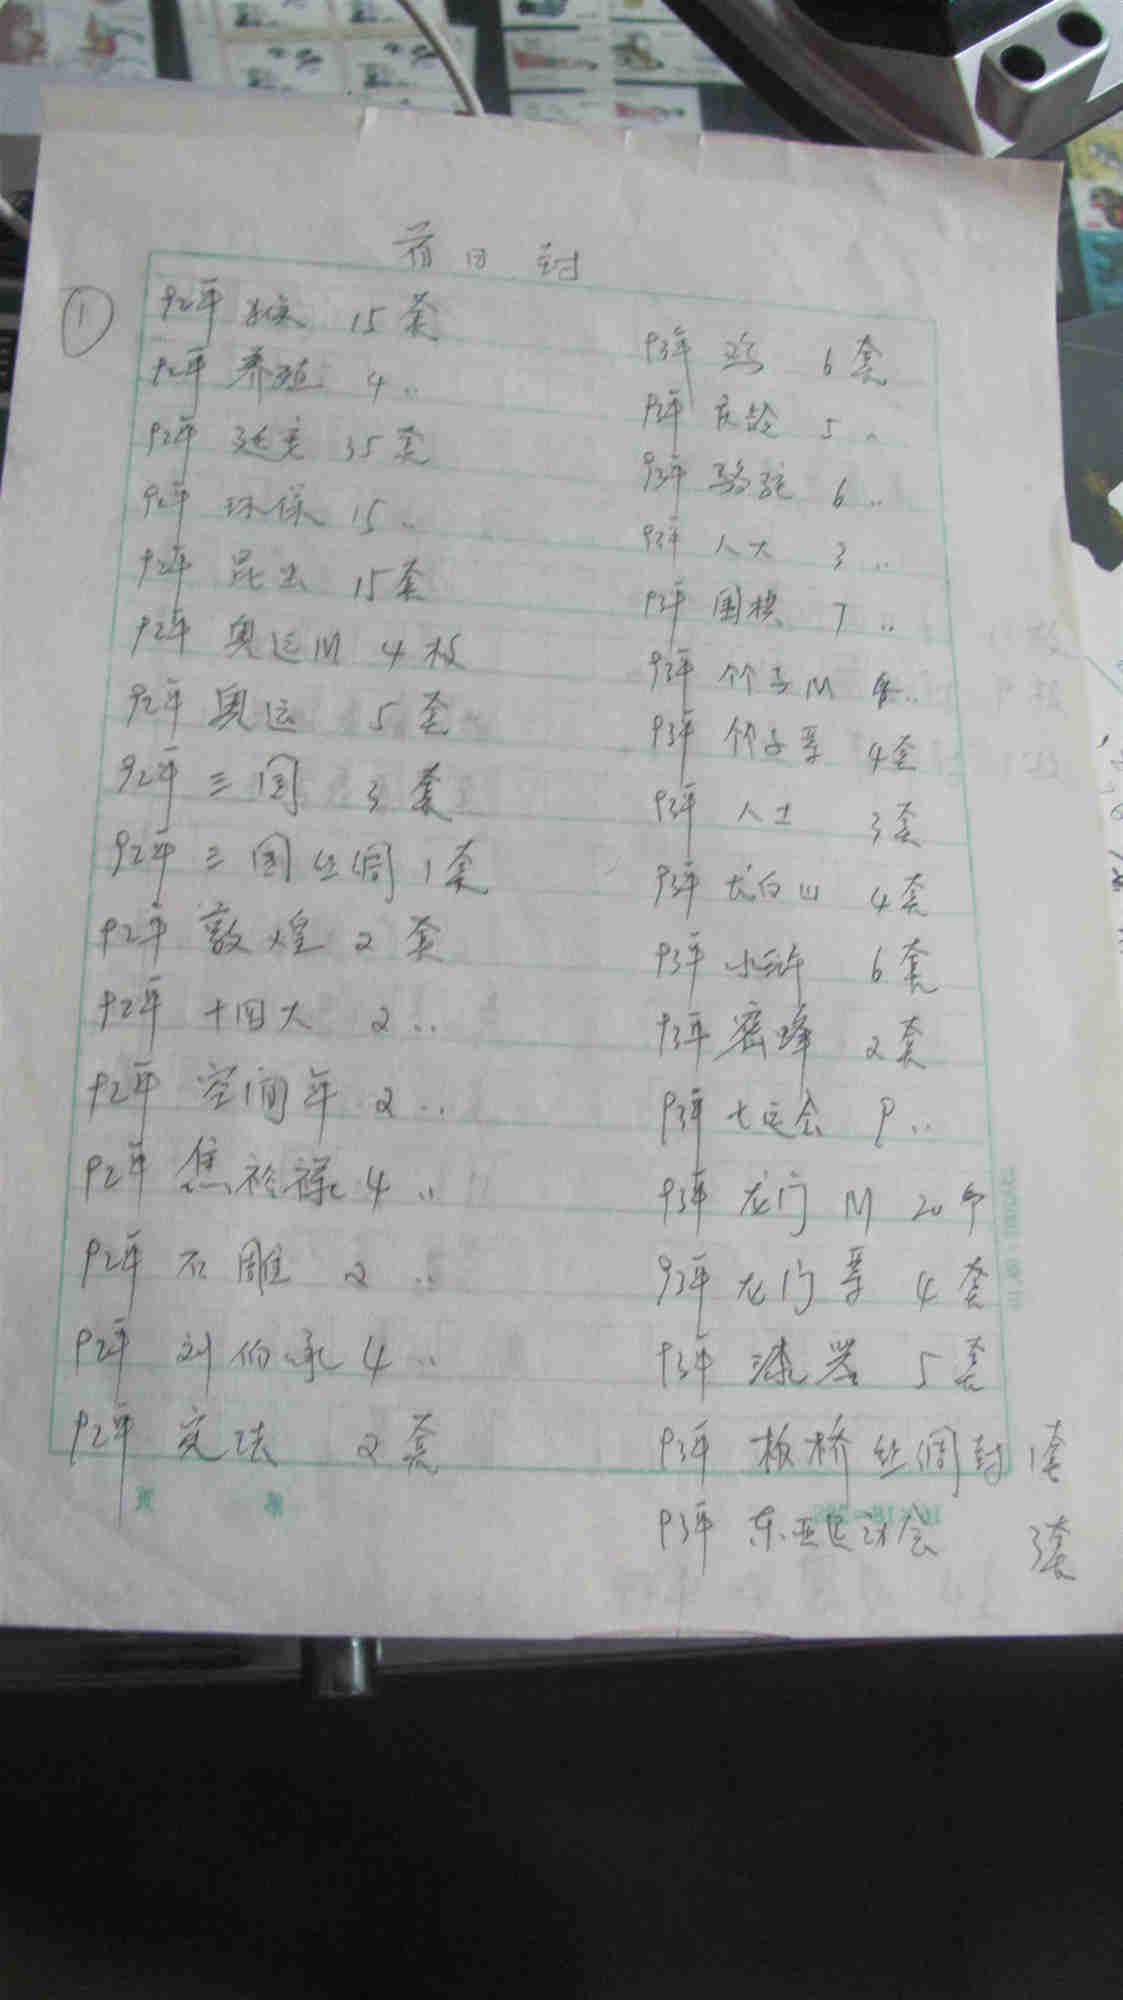 首日封
①
92年 猴 15套
92年 养殖 4 〃
92年 延安 35套
92年 环保 15 〃
92年 昆虫 15套
92年 奥运M 4枚
92年 奥运 5套
92年 三国 3套
92年 三国丝绸 1套
92年 敦煌 2套
92年 十四大 2 〃
92年 空间年 2 〃
92年 焦裕禄 4 〃
92年 石雕 2 〃
92年 刘伯承 4 〃
92年 宪法 2套
93年 鸡 6套
93年 庆龄 5 〃
93年 骆驼 6 〃
93年 人大 3 〃
93年 围棋 7 〃
93年 竹子M 〃
93年 竹子 4套
93年 人士 3套
93年 长白山 4套
93年 水浒 6套
93年 密蜂 2套
93年 七运会 9 〃
93年 龙门 M 20
93年 龙门 4套
93年 漆器 5套
93年 板桥丝绸封 1套
93年 东亚运动会 3套
页 第